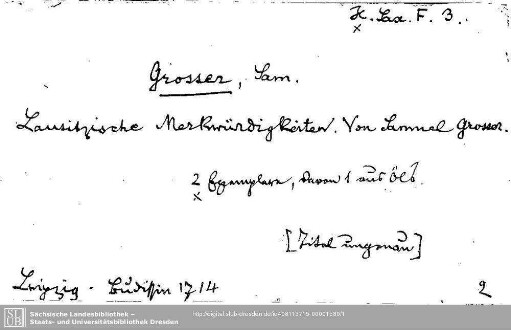 H. Sax. F. 3.
x
Grosser, Sam.
Lausitzische Merkwürdigkeiten. Von Samuel Grosser.
2 Exemplare, davon 1 aus Ölb.
x
[Titel ungenau]
Leipzig - Budissin 1714
2
Sächsische Landesbibliothek –
Staats- und Universitätsbibliothek Dresden